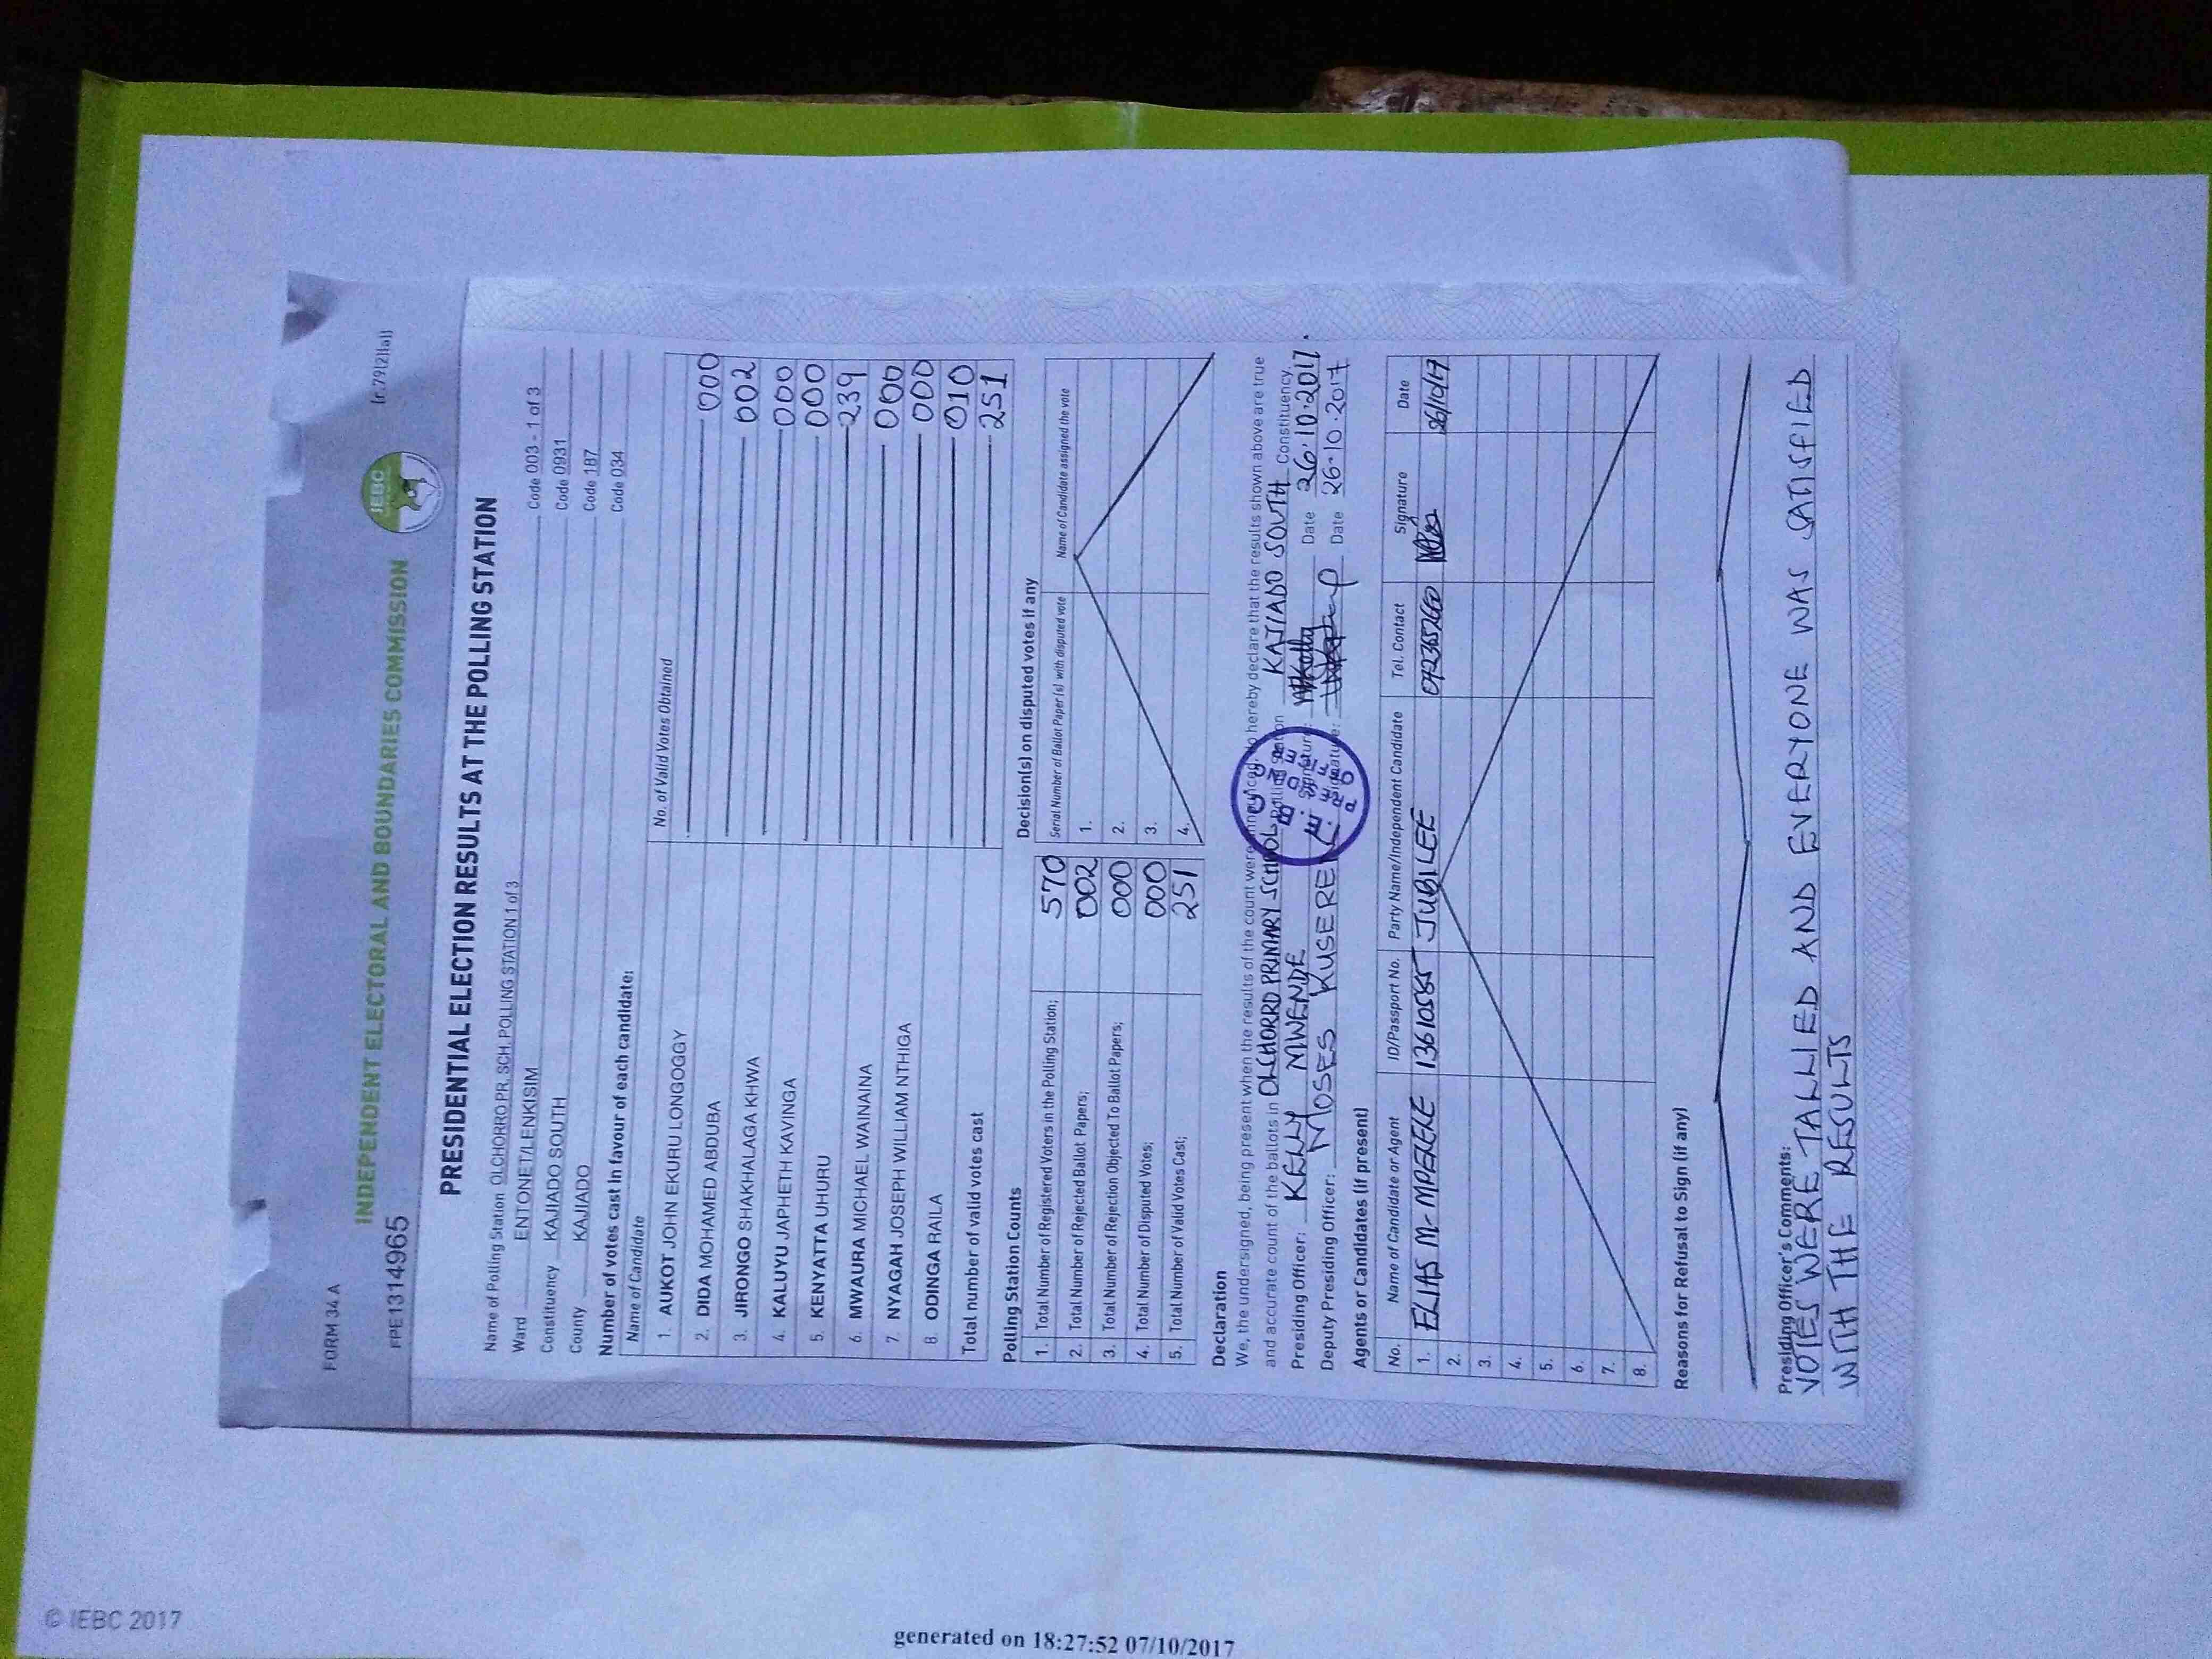 FORM 34 A
[r.79(2)(a)]
INDEPENDENT ELECTORAL AND BOUNDARIES COMMISSION
IEBC
FPE1314965
PRESIDENTIAL ELECTION RESULTS AT THE POLLING STATION
Name of Polling Station OLCHORRO PR. SCH. POLLING STATION 1 of 3 Code 003 - 1 of 3
Ward ENTONET/LENKISIM Code 0931
Constituency KAJIADO SOUTH Code 187
County KAJIADO Code 034
Number of votes cast in favour of each candidate:
Name of Candidate No. of Valid Votes Obtained
1. AUKOT JOHN EKURU LONGOGGY 000
2. DIDA MOHAMED ABDUBA 002
3. JIRONGO SHAKHALAGA KHWA 000
4. KALUYU JAPHETH KAVINGA 000
5. KENYATTA UHURU 239
6. MWAURA MICHAEL WAINAINA 000
7. NYAGAH JOSEPH WILLIAM NTHIGA 000
8. ODINGA RAILA 010
Total number of valid votes cast 251
Polling Station Counts
1. Total Number of Registered Voters in the Polling Station; 570
2. Total Number of Rejected Ballot Papers; 002
3. Total Number of Rejection Objected To Ballot Papers; 000
4. Total Number of Disputed Votes; 000
5. Total Number of Valid Votes Cast; 251
Decision(s) on disputed votes if any
Serial Number of Ballot Paper(s) with disputed vote Name of Candidate assigned the vote
1.
2.
3.
4.
Declaration
We, the undersigned, being present when the results of the count were announced, do hereby declare that the results shown above are true
and accurate count of the ballots in OLCHORRO PRIMARY SCHOOL Polling Station KAJIADO SOUTH Constituency.
Presiding Officer: KELLY MWENDE Signature: Date 26.10.2017.
Deputy Presiding Officer: MOSES Signature: Date 26.10.2017
PRESIDING OFFICER
Agents or Candidates (if present)
No. Name of Candidate or Agent ID/Passport No. Party Name/Independent Candidate Tel. Contact Signature Date
1. ELIAS M. MPERERE 13610585 JUBILEE 26/10/17
2.
3.
4.
5.
6.
7.
8.
Reasons for Refusal to Sign (if any)
Presiding Officer's Comments:
VOTES WERE TALLIED AND EVERYONE WAS SATISFIED
WITH THE RESULTS
© IEBC 2017
generated on 18:27:52 07/10/2017